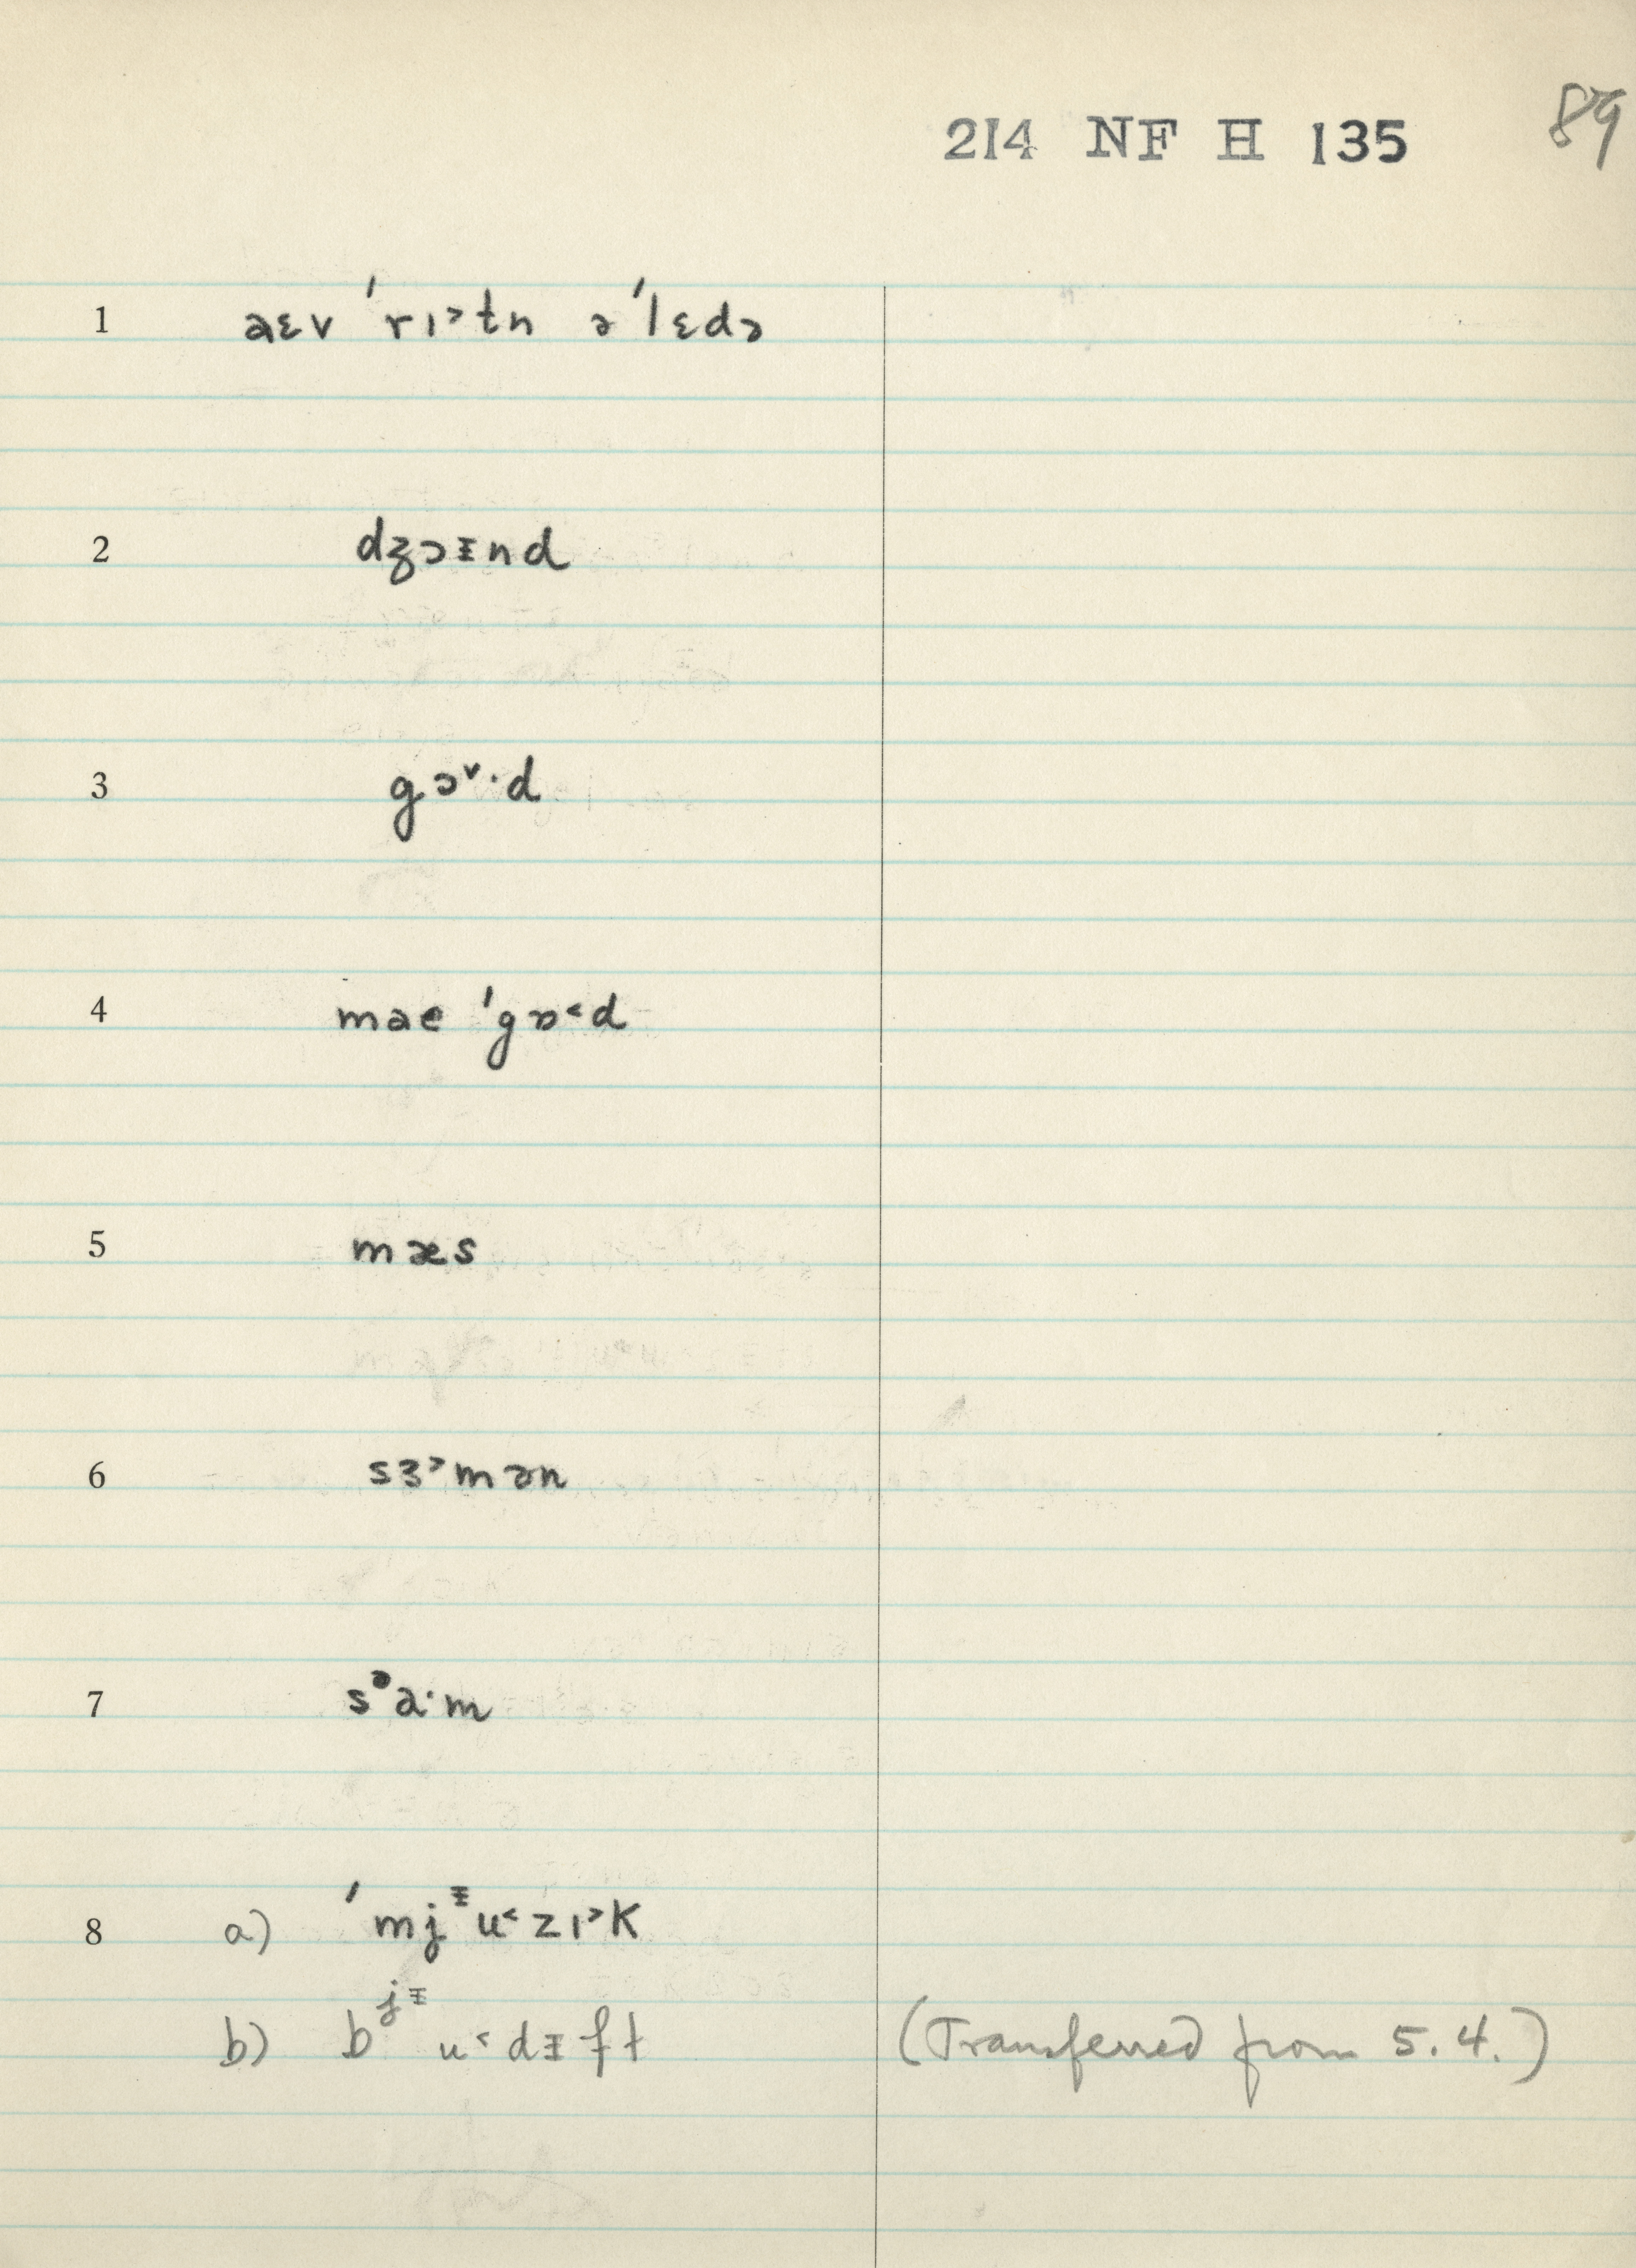 214 NF H 135 89
1 aɛv ˈrɪ˃tn əˈlɛdə
2 dʒɔᵻnd
3 gɔ˅·d
4 mae ˈgɒ˂d
5 mæs
6 sɜ˃mən
7 sᵊɑ·m
8 a) ˈmjᵻu˂zɪ˃k
b) bʲᵻu˂dᵻft (Transferred from 5.4.)